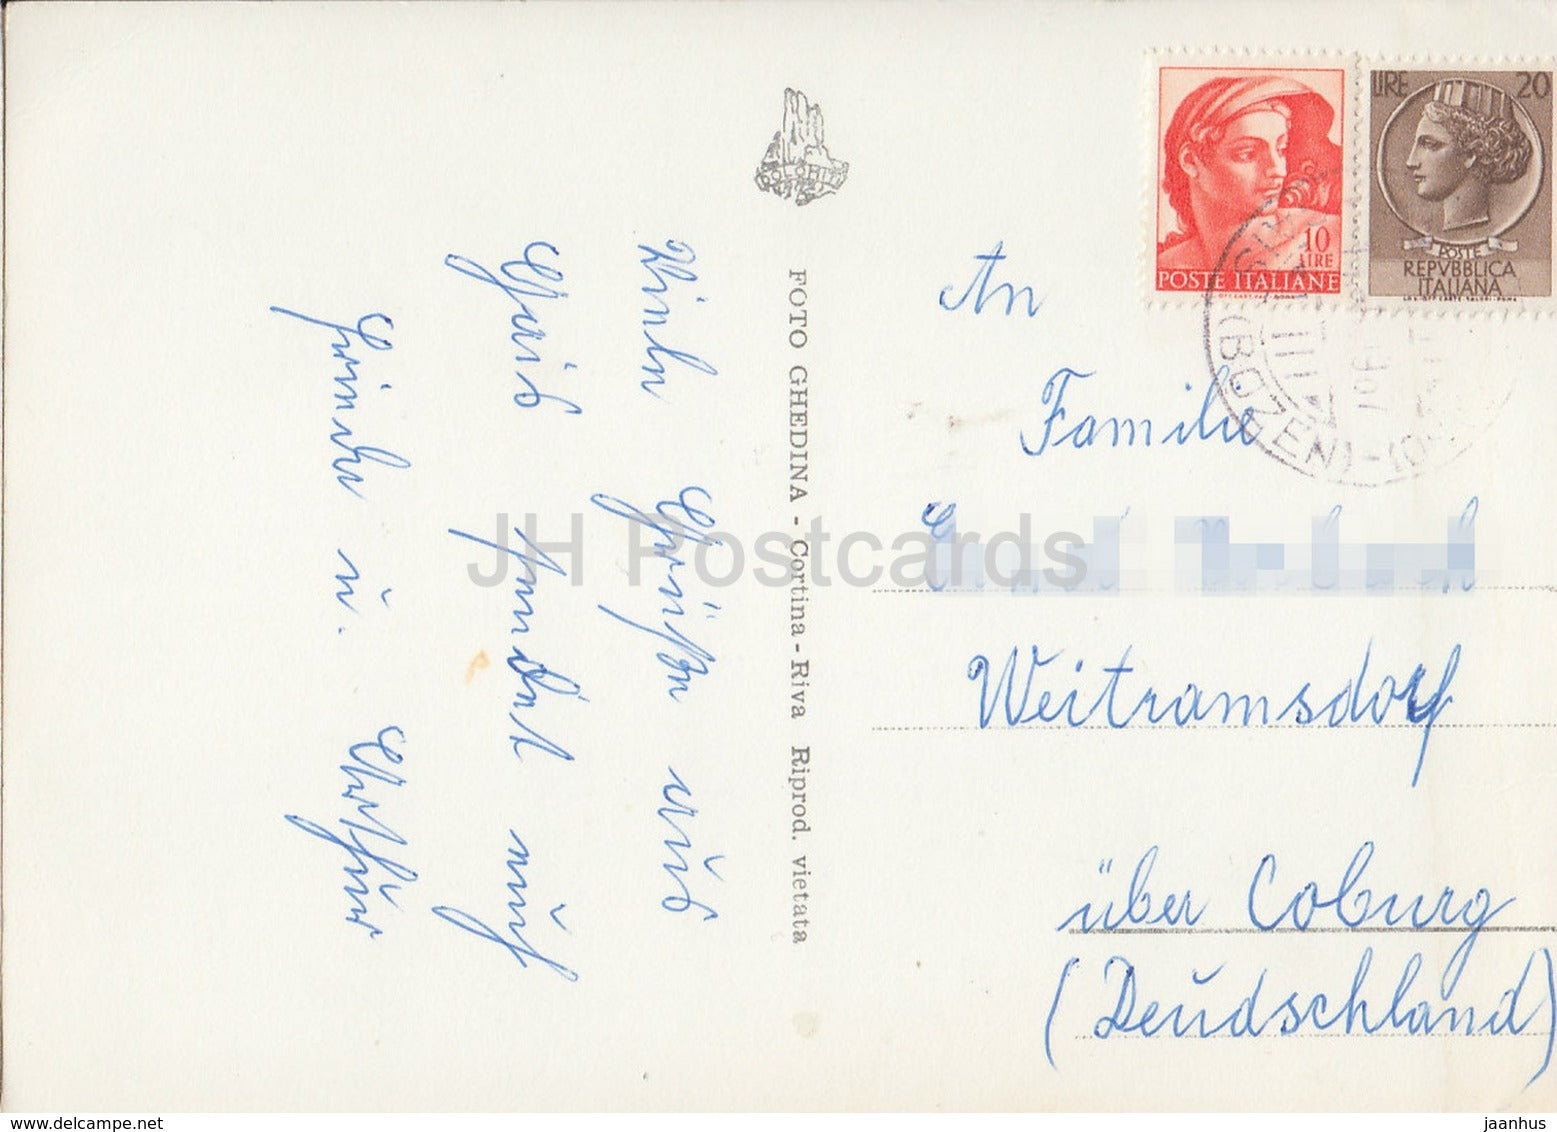 Viele Grüße aus
Gais sendet euch
Heinde u. Arthur
DOLOMITI
FOTO GHEDINA - Cortina - Riva Riprod. vietata
10
LIRE
POSTE ITALIANE
LIRE 20
POSTE
REPVBBLICA
ITALIANA
(BOZEN)
An
Familie
Weitramsdorf
über Coburg
(Deudschland)
JH Postcards
www.delcampe.net
jaanhus